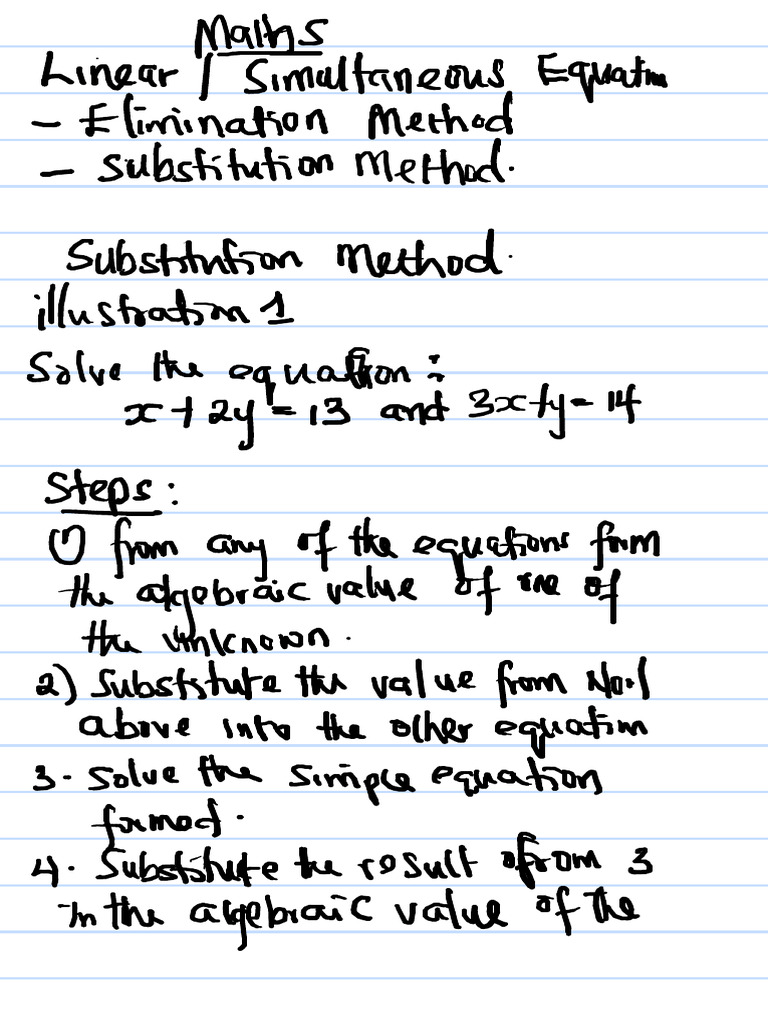 Maths
Linear / Simultaneous Equatn
- Elimination Method
- Substitution Method.
Substitution Method.
illustration 1
Solve the equation:
x + 2y = 13 and 3x + y = 14
Steps:
1) from any of the equations form
the algebraic value of one of
the unknown.
2) Substitute the value from No.1
above into the other equation
3. Solve the simple equation
formed.
4. Substitute the result from 3
in the algebraic value of the